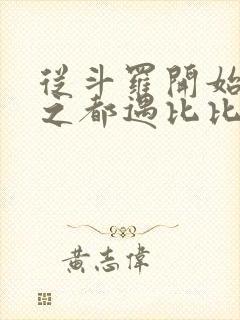 從斗羅開始
之都遇比比
黃志偉